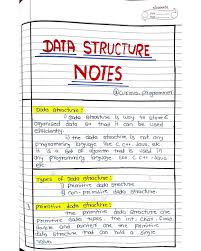 DATA STRUCTURE
NOTES
@curious_programmer
Data Structure:
Data structure is way to store &
organised data so that it can be used
efficiently.
the data structure is not any
programming language like C, C++, Java, etc
It is a set of algorithm that is used in
any programming language like C, C++ Java
etc
Types of Data Structure:
i) primitive data structure
ii) non-primitive data structure
primitive data structure:
the primitive data structure are
primitive data types. The int, char,
double and pointer are the primitive
data structure that can hold a single